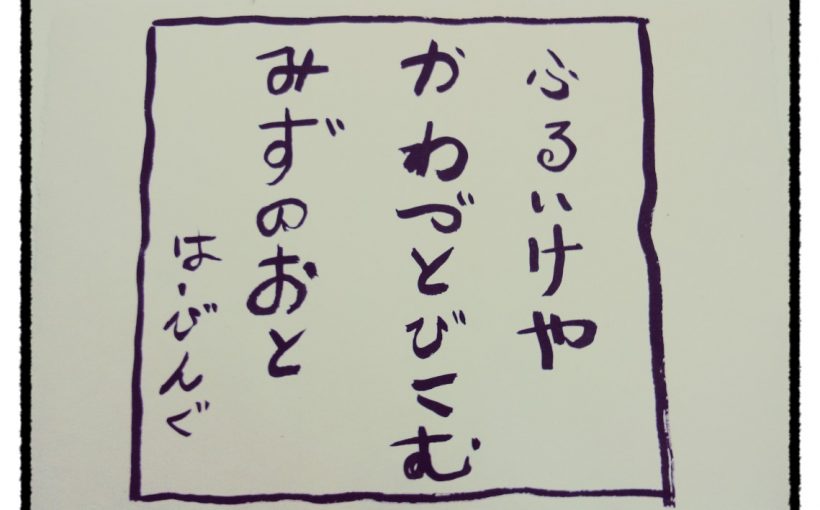 ふるいけや
かわづとびこむ
みずのおと
はーびんぐ